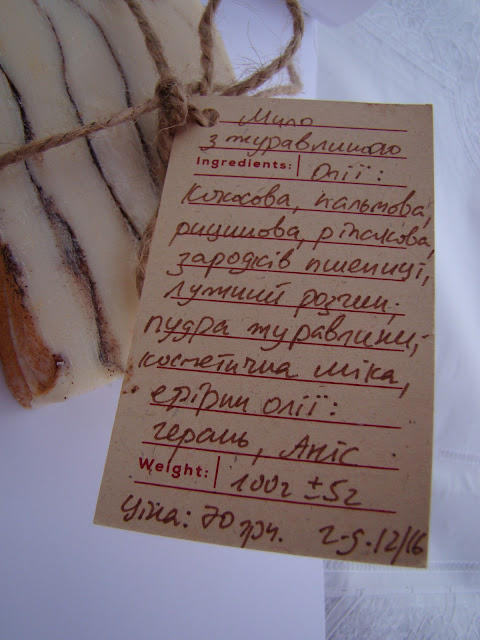 Мило
з журавлиною
Ingredients: Олії:
кокосова, пальмова,
рицинова, ріпакова,
зародків пшениці,
лужний розчин;
пудра журавлини;
косметична міка,
ефірні олії:
герань, Аніс.
Weight: 100г ±5г
Ціна: 70 грн. 2-9.12/16